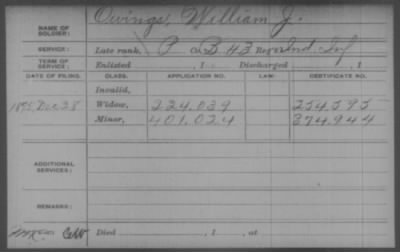 NAME OF SOLDIER: Owings, William J.
SERVICE: Late rank, P Co. B 43 Reg't Ind. Inf
TERM OF SERVICE: Enlisted , 1 Discharged , 1
DATE OF FILING. CLASS. APPLICATION NO. LAW. CERTIFICATE NO.
Invalid,
Dec 28 Widow, 224.039 254.595
Minor, 401.024 374.944
ADDITIONAL SERVICES:
REMARKS:
C&W Died , 1 , at